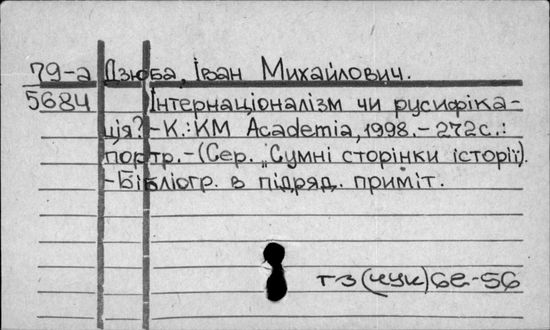 79-а Дзюба, Іван Михайлович.
5684 Інтернаціоналізм чи русифіка-
ція?-К.: КМ Academia, 1998.-272с.:
портр.-(Сер. „Сумні сторінки історії).
-Бібліогр. в підряд. приміт.
6е-56